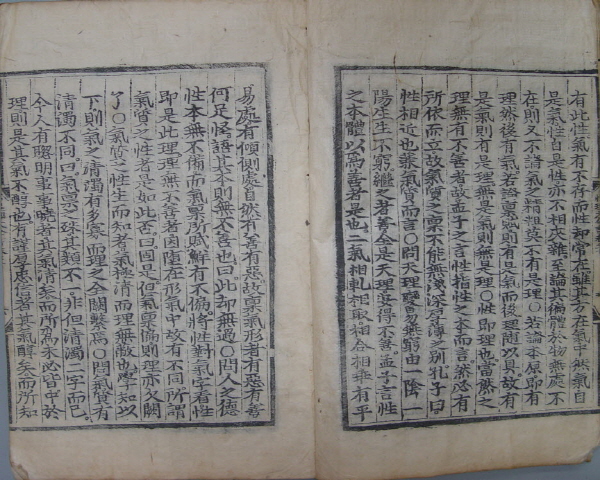 有此性氣有不存而性却常在雖其方在氣中然氣自
是氣性自是性亦不相夾雜至論其徧體於物無處不
在則又不論氣之精粗莫不有是理○若論本原即有
理然後有氣若論禀賦則有是氣而後理隨以具故有
是氣則有是理無是氣則無是理○性即理也當然之
理無有不善者故孟子之言性指性之本而言然必有
所依而立故氣質之禀不能無淺深厚薄之别孔子曰
性相近也兼氣質而言○問天理變易無窮由一陰一
陽生生不窮繼之者善全是天理安得不善孟子言性
之本體以爲善者是也二氣相軋相取相合相乖有平
易處有傾側處自然有善有惡故禀氣形者有惡有善
何足怪語其本則無不善也曰此却無過○問人之德
性本無不備而氣禀所賦鮮有不偏將性對氣字看性
即是此理理無不善者因墮在形氣中故有不同所謂
氣質之性者是如此否曰固是但氣禀偏則理亦欠闕
了○氣質之性生而知者氣極清而理無蔽也學知以
下則氣之清濁有多寡而理之全闕繫焉○問氣質有
清濁不同曰氣禀之殊其類不一非但清濁二字而已
今人有聰明事事曉者其氣清矣而所爲未必皆中於
理則是其氣不醇也有謹厚忠信者其氣醇矣而所知